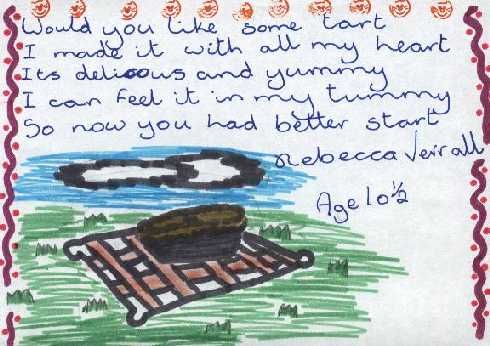 Would you like some tart
I made it with all my heart
Its delicous and yummy
I can feel it in my tummy
So now you had better start
Rebecca Veirall
Age 10 ½